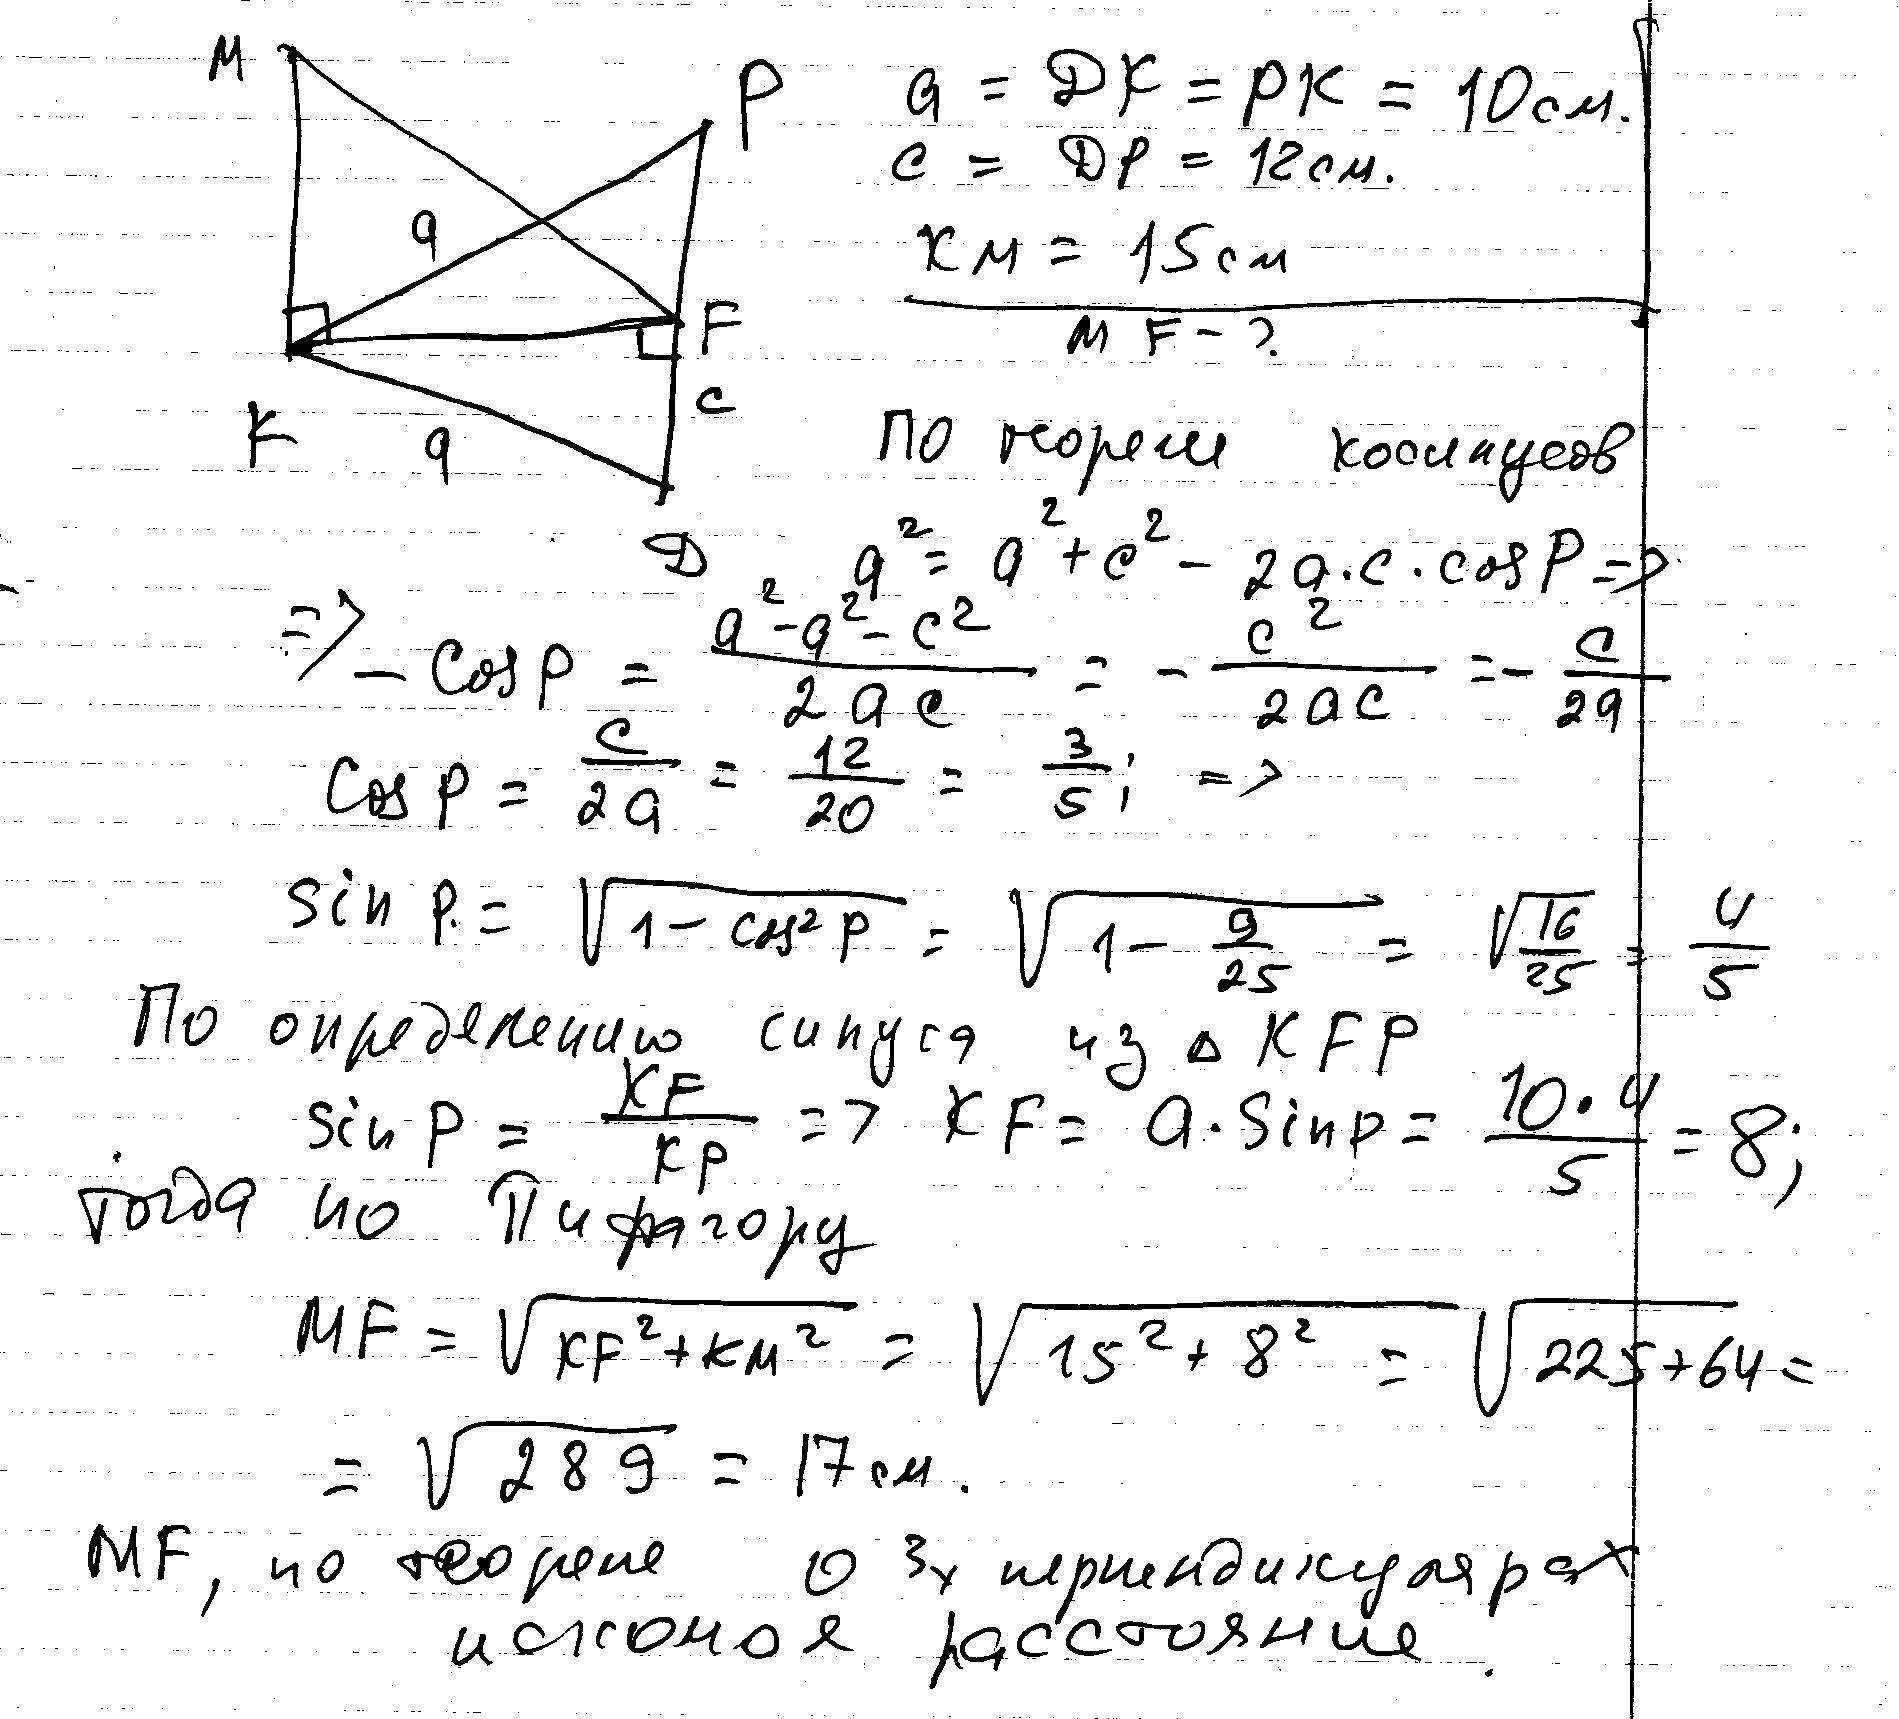 М
Р
a = ДК = РК = 10 см.
c = ДР = 12 см.
a
КМ = 15 см
F
МF - ?
c
К
a
По теореме косинусов
Д
a² = a² + c² - 2a·c·cos P =>
=> - cos P = (a² - a² - c²)/(2ac) = - c²/(2ac) = - c/(2a)
cos P = c/(2a) = 12/20 = 3/5; =>
sin P. = √(1 - cos² P) = √(1 - 9/25) = √(16/25) = 4/5
По определению синуса из △ KFP
sin P = KF/KP => KF = a·sin P = (10·4)/5 = 8;
тогда по Пифагору
MF = √(KF² + KM²) = √(15² + 8²) = √(225 + 64) =
= √289 = 17 см.
MF, по теореме о 3х перпендикулярах
искомоя расстояние.